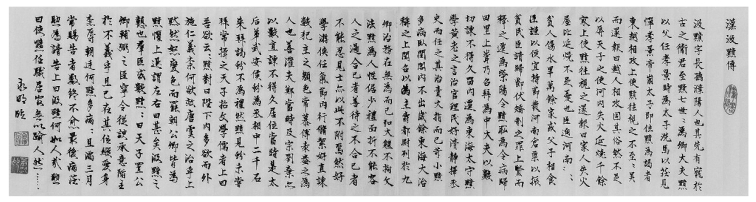 漢黯傳
汲黯字長孺濮陽人也其先有寵於
古之衛君至黯七世世為卿大夫黯
以父任孝景時為太子洗馬以莊見
憚孝景帝崩太子即位黯為謁者
東越相攻上使黯往視之不至至吳
而還報曰越人相攻固其俗然不足
以辱天子之使河內失火延燒千餘
家上使黯往視之還報曰家人失火
屋比延燒不足憂也臣過河南……
貧人傷水旱萬餘家或父子相食
臣謹以便宜持節發河南倉粟以振
貧民臣請歸節伏矯制之罪上賢而
釋之遷為滎陽令黯恥為令病歸
田里上聞乃召拜為中大夫以數
切諫不得久留內遷為東海太守黯
學黃老之言治官理民好清靜擇丞
史而任之其治責大指而已不苛小黯
多病臥閨閤內不出歲餘東海大治
稱之上聞召以為主爵都尉列於九
卿治務在無為而已弘大體不拘文
法黯為人性倨少禮面折不能容
人之過合己者善待之不合己者
不能忍見士亦以此不附焉然好
學游俠任氣節內行脩絜好直諫
數犯主之顏色常慕傅柏袁盎之為
人也善灌夫鄭當時及宗正劉棄亦
以數直諫不得久居位當時是太
后弟武安侯蚡為丞相中二千石
來拜謁蚡不為禮然黯見蚡未嘗
拜常揖之天子方招文學儒者上曰
吾欲云云黯對曰陛下內多欲而外
施仁義柰何欲效唐虞之治乎上
默然怒變色而罷朝公卿皆為
黯懼上退謂左右曰甚矣汲黯之
戇也群臣或數黯黯曰天子置公
卿輔弼之臣寧令從諛承意陷主
於不義乎且已在其位縱愛身
柰辱朝廷何黯多病病且滿三月
上常賜告者數終不愈最後病莊
助為請告上曰汲黯何如人哉助
曰使黯任職居官無以踰人然……